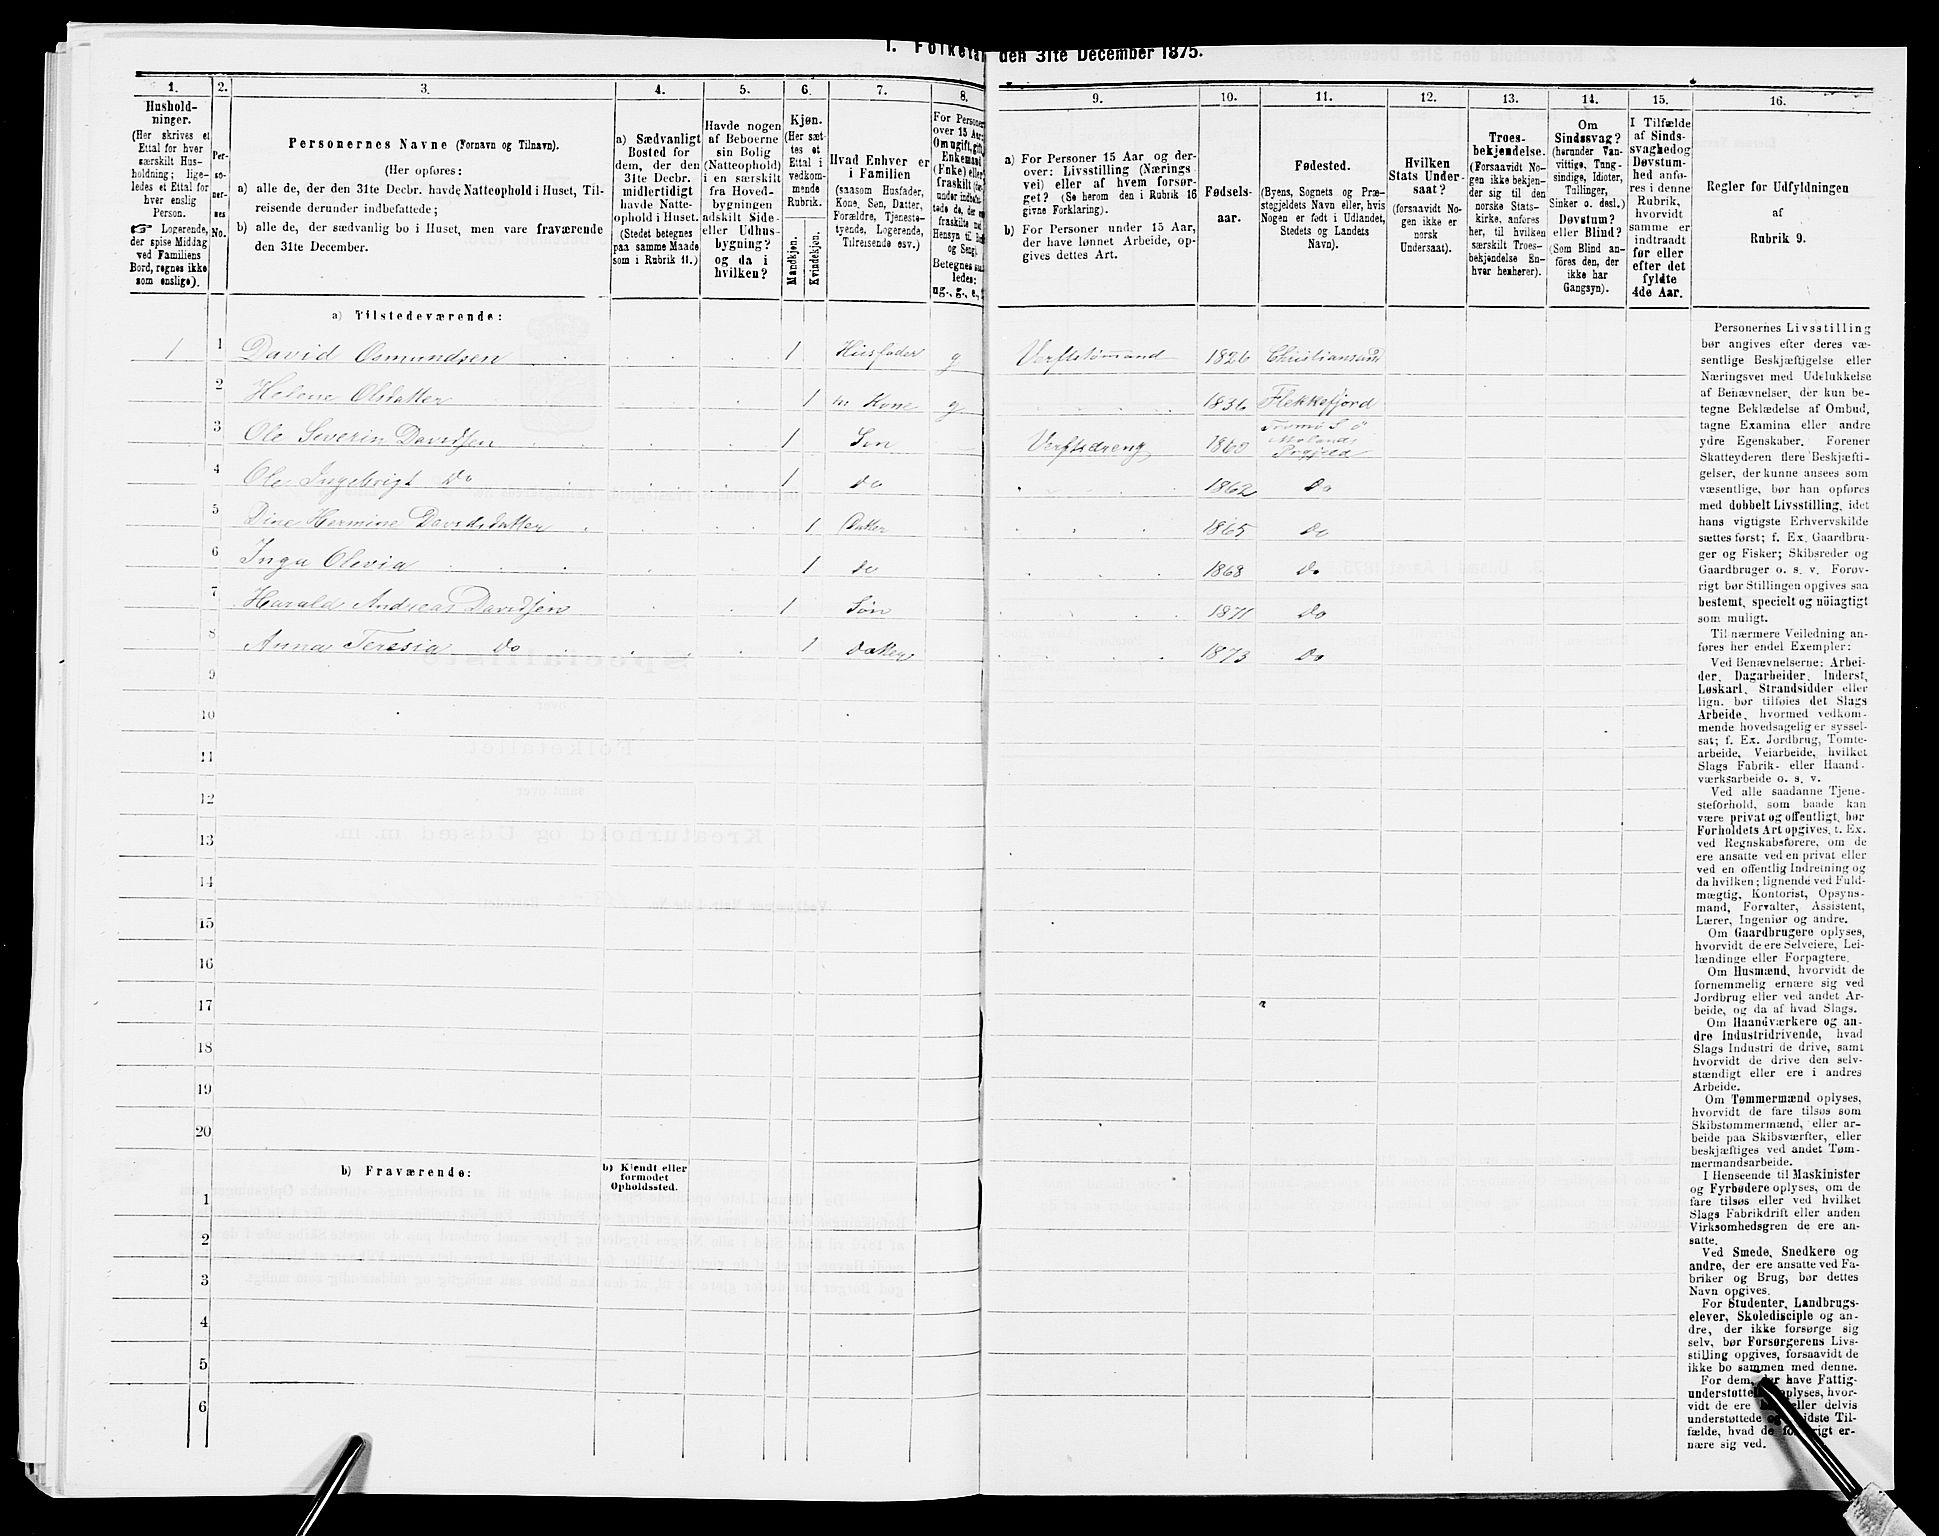 1. Folketal den 31te December 1875.
1.
2.
3.
4.
5.
6.
7.
8.
9.
10.
11.
12.
13.
14.
15.
16.
Hushold-
ninger.
(Her skrives et
Ettal for hver
særskilt Hus-
holdning; lige-
ledes et Ettal for
hver enslig
Person.
☞ Logerende,
der spise Middag
ved Familiens
Bord, regnes ikke
som enslige).
Per-
so-
ner-
nes
No.
Personernes Navne (Fornavn og Tilnavn).
(Her opføres:
a) alle de, der den 31te Decbr. havde Natteophold i Huset, Til-
reisende derunder indbefattede;
b) alle de, der sædvanlig bo i Huset, men vare fraværende
den 31te December.
a) Sædvanligt
Bosted for
dem, der den
31te Decbr.
midlertidigt
havde Natte-
ophold i Huset.
(Stedet betegnes
paa samme Maade
som i Rubrik 11.)
Havde nogen
af Beboerne
sin Bolig
(Natteophold)
i en særskilt
fra Hoved-
bygningen
adskilt Side-
eller Udhus-
bygning?
og da i
hvilken?
Kjøn.
(Her sæt-
tes et
Ettal i
vedkom-
mende
Rubrik.
Mandkjøn.
Kvindekjøn.
Hvad Enhver er
i Familien
(saasom Husfader,
Kone, Søn, Datter,
Forældre, Tjeneste-
tyende, Logerende,
Tilreisende osv.).
For Personer
over 15 Aar:
Om ugift, gift,
Enkemand
(Enke) eller
fraskilt
Betegnes saa-
ledes:
ug., g., e.,
a) For Personer 15 Aar og der-
over: Livsstilling (Nærings-
vei) eller af hvem forsør-
get? (Se herom den i Rubrik 16
givne Forklaring).
b) For Personer under 15 Aar,
der have lønnet Arbeide, op-
gives dettes Art.
Fødsels-
aar.
Fødested.
(Byens, Sognets og Præ-
stegjeldets Navn eller, hvis
Nogen er født i Udlandet,
Stedets og Landets
Navn).
Hvilken
Stats Under-
saat?
(forsaavidt No-
gen ikke er
norsk
Undersaat).
Troes-
bekjendelse.
(Forsaavidt No-
gen ikke bekjen-
der sig til den
norske Stats-
kirke, anføres
her, til hvilken
særskilt Troes-
bekjendelse En-
hver henhører).
Om
Sindssvag?
(herunder Van-
vittige, Tung-
sindige, Idioter,
Tullinger,
Sinker o. desl.)
Døvstum?
eller Blind?
(Som Blind an-
føres den, der
ikke har
Gangsyn).
I Tilfælde
af Sinds-
svaghed og
Døvstum-
hed anfø-
res i denne
Rubrik,
hvorvidt
samme er
indtraadt
før eller
efter det
fyldte
4de Aar.
Regler for Udfyldningen
af
Rubrik 9.
a) Tilstedeværende:
1 1 David Osmundsen 1 Husfader g Verftstømmand 1826 Christiansand
2 Helene Olsdatter 1 hs. Kone g 1836 Flekkefjord
3 Ole Severin Davidsen 1 Søn Verftsdreng 1860 Tromø S Ø Molands Prgjeld
4 Ole Ingebrigt Do 1 do 1862 Do
5 Dine Hermine Davidsdatter 1 Datter 1865 Do
6 Inga Olevia 1 do 1868 Do
7 Harald Andreas Davidsen 1 Søn 1871 Do
8 Anna Teresia Do 1 datter 1873 Do
9
10
11
12
13
14
15
16
17
18
19
20
b) Fraværende:
b) Kjendt eller
formodet
Opholdssted.
1
2
3
4
5
6
Personernes Livsstilling
bør angives efter deres væ-
sentlige Beskjæftigelse eller
Næringsvei med Udelukkelse
af Benævnelser, der kun be-
tegne Beklædelse af Ombud,
tagne Examina eller andre
ydre Egenskaber. Forener
Skatteyderen flere Beskjæfti-
gelser, der kunne ansees som
væsentlige, bør han opføres
med dobbelt Livsstilling, idet
hans vigtigste Erhvervskilde
sættes først; f. Ex. Gaardbru-
ger og Fisker; Skibsreder og
Gaardbruger o. s. v. Forøv-
rigt bør Stillingen opgives saa
bestemt, specielt og nöiagtigt
som muligt.
Til nærmere Veiledning an-
føres her endel Exempler:
Ved Benævnelserne: Arbei-
der, Dagarbeider, Inderst,
Løskarl, Strandsidder eller
lign. bør tilføies det Slags
Arbeide, hvormed vedkom-
mende hovedsagelig er syssel-
sat; f. Ex. Jordbrug, Tomte-
arbeide, Veiarbeide, hvilket
Slags Fabrik- eller Haand-
værksarbeide o. s. v.
Ved alle saadanne Tjene-
steforhold, som baade kan
være privat og offentligt, bør
Forholdets Art opgives, f. Ex.
ved Regnskabsførere, om de
ere ansatte ved en privat eller
ved en offentlig Indretning og
da hvilken; lignende ved Fuld-
mægtig, Kontorist, Opsyns-
mand, Forvalter, Assistent,
Lærer, Ingeniør og andre.
Om Gaardbrugere oplyses,
hvorvidt de ere Selveiere, Lei-
lændinge eller Forpagtere.
Om Husmænd, hvorvidt de
fornemmelig ernære sig ved
Jordbrug eller ved andet Ar-
beide, og da af hvad Slags.
Om Haandværkere og an-
dre Industridrivende, hvad
Slags Industri de drive, samt
hvorvidt de drive den selv-
stændigt eller ere i andres
Arbeide.
Om Tømmermænd oplyses,
hvorvidt de fare tilsøs som
Skibstømmermænd, eller ar-
beide paa Skibsværfter, eller
beskjæftiges ved andet Tøm-
mermandsarbeide.
I Henseende til Maskinister
og Fyrbødere oplyses, om de
fare tilsøs eller ved hvilket
Slags Fabrikdrift eller anden
Virksomhedsgren de ere an-
satte.
Ved Smede, Snedkere og
andre, der ere ansatte ved Fa-
briker og Brug, bør dettes
Navn opgives.
For Studenter, Landbrugs-
elever, Skoledisciple og an-
dre, der ikke forsørge sig
selv, bør Forsørgerens Livs-
stilling opgives, forsaavidt de
ikke bo sammen med denne.
For dem, der have Fattig-
understøttelse oplyses, hvor-
vidt de ere eller delvis
understøttede og i sidste Til-
fælde, hvad de forøvrigt er-
nære sig ved.